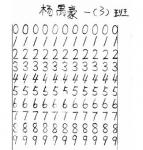 杨景豪 一(3)班
0000000000
1111111111
2222222222
3333333333
4444444444
5555555555
6666666666
7777777777
8888888888
9999999999